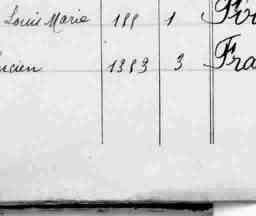 Louis Marie 188 1
ucien 1383 3 Fra